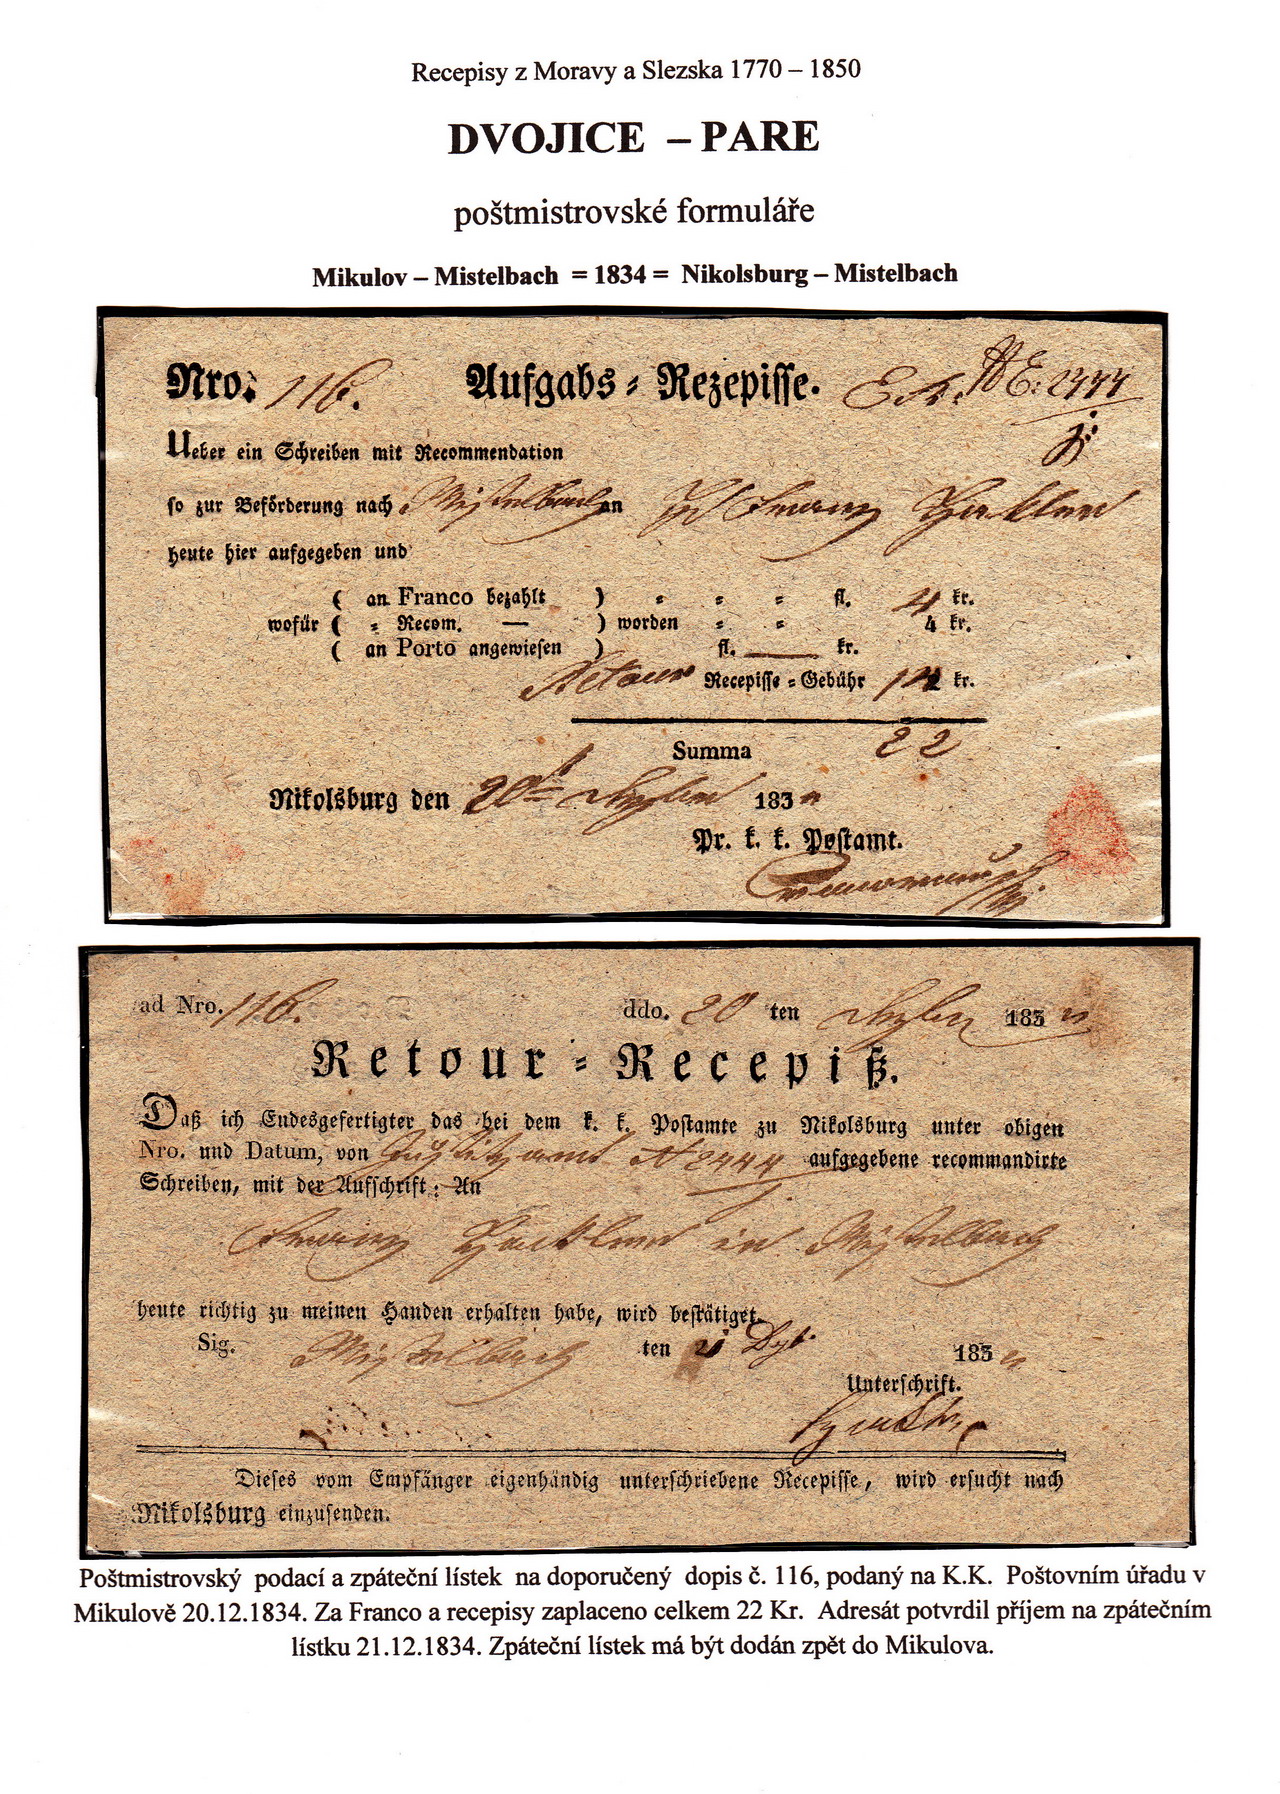 Recepisy z Moravy a Slezska 1770 – 1850
DVOJICE – PARE
poštmistrovské formuláře
Mikulov – Mistelbach = 1834 = Nikolsburg – Mistelbach
Nro. 116. Aufgabs = Rezepisse. E: 2444
Ueber ein Schreiben mit Recommendation
so zur Beförderung nach Mistelbach an Franz
heute hier aufgegeben und
( an Franco bezahlt ) = = = fl. 4 kr.
wofür ( = Recom. — ) worden = = 4 kr.
( an Porto angewiesen ) fl. ____ kr.
Retour Recepisse = Gebühr 14 kr.
Summa 22
Nikolsburg den 20t Dezber 1834
Pr. k. k. Postamt.
ad Nro. 116. ddo. 20 ten Dezber 1834
Retour = Recepiß.
Daß ich Endesgefertigter das bei dem k. k. Postamte zu Nikolsburg unter obigen
Nro. und Datum, von Justizamt N 2444 aufgegebene recommandirte
Schreiben, mit der Aufschrift: An
Franz in Mistelbach
heute richtig zu meinen Handen erhalten habe, wird bestätiget.
Sig. Mistelbach ten 21 Dzb. 1834
Unterschrift.
Dieses vom Empfänger eigenhändig unterschriebene Recepisse, wird ersucht nach
Nikolsburg einzusenden.
Poštmistrovský podací a zpáteční lístek na doporučený dopis č. 116, podaný na K.K. Poštovním úřadu v
Mikulově 20.12.1834. Za Franco a recepisy zaplaceno celkem 22 Kr. Adresát potvrdil příjem na zpátečním
lístku 21.12.1834. Zpáteční lístek má být dodán zpět do Mikulova.